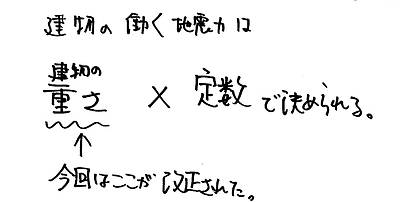 建物の働く地震力は
建物の
重さ × 定数で決められる。
↑
今回はここが改正された。